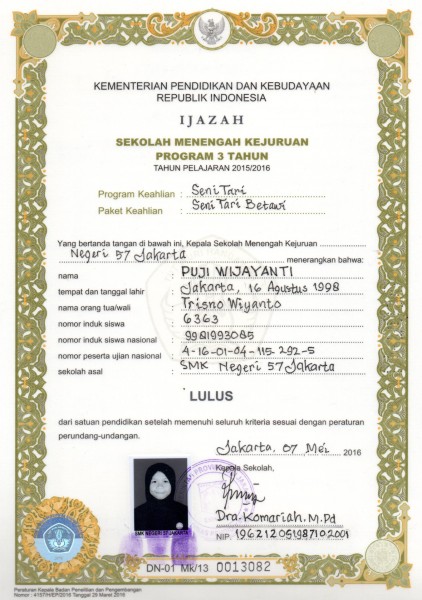 KEMENTERIAN PENDIDIKAN DAN KEBUDAYAAN
REPUBLIK INDONESIA
IJAZAH
SEKOLAH MENENGAH KEJURUAN
PROGRAM 3 TAHUN
TAHUN PELAJARAN 2015/2016
Program Keahlian : Seni Tari
Paket Keahlian : Seni Tari Betawi
Yang bertanda tangan di bawah ini, Kepala Sekolah Menengah Kejuruan
Negeri 57 Jakarta menerangkan bahwa:
nama : PUJI WIJAYANTI
tempat dan tanggal lahir : Jakarta, 16 Agustus 1998
nama orang tua/wali : Trisno Wiyanto
nomor induk siswa : 6363
nomor induk siswa nasional : 9981993085
nomor peserta ujian nasional : 4-16-01-04-115-292-5
sekolah asal : SMK Negeri 57 Jakarta
LULUS
dari satuan pendidikan setelah memenuhi seluruh kriteria sesuai dengan peraturan
perundang-undangan.
Jakarta, 07 Mei 2016
Kepala Sekolah,
Dra. Komariah, M.Pd
NIP. 196212051987102001
SMK NEGERI 57 JAKARTA
DN-01 Mk/13 0013082
Peraturan Kepala Badan Penelitian dan Pengembangan
Nomor : 4167/H/EP/2016 Tanggal 29 Maret 2016